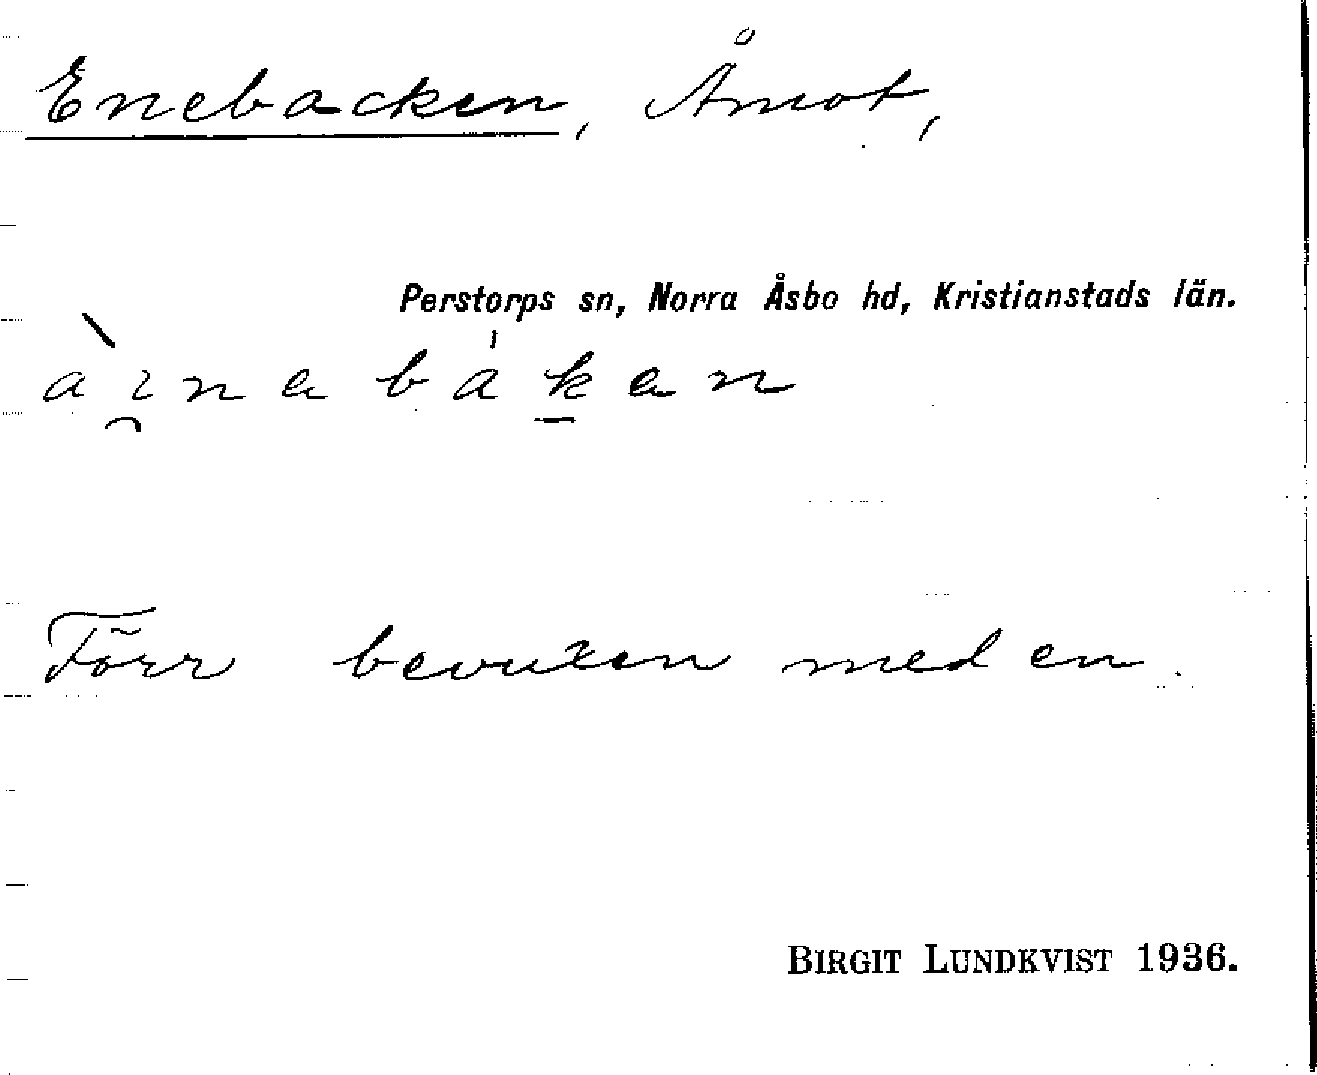 Enebacken, Åmot,
Perstorps sn, Norra Åsbo hd, Kristianstads län.
àı̯nabák̲an
Förr bevuxen med en.
BIRGIT LUNDKVIST 1936.